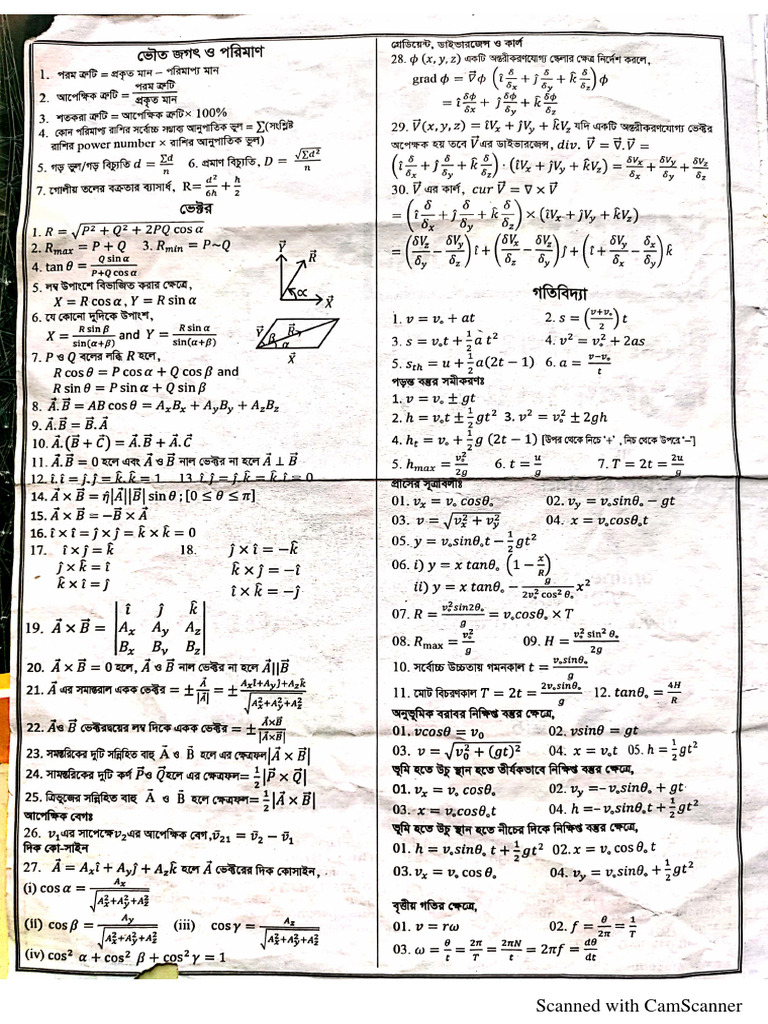 ভৌত জগৎ ও পরিমাণ
1. পরম ত্রুটি = প্রকৃত মান − পরিমাপ্য মান
2. আপেক্ষিক ত্রুটি = পরম ত্রুটি / প্রকৃত মান
3. শতকরা ত্রুটি = আপেক্ষিক ত্রুটি × 100%
4. কোন পরিমাপ্য রাশির সর্বোচ্চ সম্ভাব্য আনুপাতিক ভুল = ∑(সংশ্লিষ্ট
রাশির power number × রাশির আনুপাতিক ভুল)
5. গড় ভুল/গড় বিচ্যুতি d = ∑d/n 6. প্রমাণ বিচ্যুতি, D = √∑d²/n
7. গোলীয় তলের বক্রতার ব্যাসার্ধ, R= d²/6h + h/2
ভেক্টর
1. R = √(P² + Q² + 2PQ cos α)
2. R_max = P + Q 3. R_min = P~Q
4. tan θ = Q sin α / (P+Q cos α)
5. লম্ব উপাংশে বিভাজিত করার ক্ষেত্রে,
X = R cos α, Y = R sin α
6. যে কোনো দুদিকে উপাংশ,
X = R sin β / sin(α+β) and Y = R sin α / sin(α+β)
7. P ও Q বলের লব্ধি R হলে,
R cos θ = P cos α + Q cos β and
R sin θ = P sin α + Q sin β
Y⃗ R⃗ α X⃗
Y⃗ β R⃗ α X⃗
8. A⃗.B⃗ = AB cos θ = AₓBₓ + A_yB_y + A_zB_z
9. A⃗.B⃗ = B⃗.A⃗
10. A⃗.(B⃗ + C⃗) = A⃗.B⃗ + A⃗.C⃗
11. A⃗.B⃗ = 0 হলে এবং A⃗ ও B⃗ নাল ভেক্টর না হলে A⃗ ⊥ B⃗
12. î.î = ĵ.ĵ = k̂.k̂ = 1 13. î.ĵ = ĵ.k̂ = k̂.î = 0
14. A⃗ × B⃗ = η̂|A⃗||B⃗| sin θ ; [0 ≤ θ ≤ π]
15. A⃗ × B⃗ = −B⃗ × A⃗
16. î × î = ĵ × ĵ = k̂ × k̂ = 0
17. î × ĵ = k̂ 18. ĵ × î = −k̂
ĵ × k̂ = î k̂ × ĵ = −î
k̂ × î = ĵ î × k̂ = −ĵ
19. A⃗ × B⃗ = | î ĵ k̂ |
| Aₓ A_y A_z |
| Bₓ B_y B_z |
20. A⃗ × B⃗ = 0 হলে, A⃗ ও B⃗ নাল ভেক্টর না হলে A⃗||B⃗
21. A⃗ এর সমান্তরাল একক ভেক্টর = ± A⃗/|A⃗| = ± (Aₓî+A_yĵ+A_zk̂)/√(Aₓ²+A_y²+A_z²)
22. A⃗ও B⃗ ভেক্টরদ্বয়ের লম্ব দিকে একক ভেক্টর = ± (A⃗×B⃗)/|A⃗×B⃗|
23. সমন্তরিকের দুটি সন্নিহিত বাহু A⃗ ও B⃗ হলে এর ক্ষেত্রফল|A⃗ × B⃗|
24. সামন্তরিকের দুটি কর্ণ P⃗ও Q⃗হলে এর ক্ষেত্রফল= 1/2 |P⃗ × Q⃗|
25. ত্রিভুজের সন্নিহিত বাহু A⃗ ও B⃗ হলে ক্ষেত্রফল= 1/2 |A⃗ × B⃗|
আপেক্ষিক বেগঃ
26. v₁এর সাপেক্ষেv₂এর আপেক্ষিক বেগ, v̄₂₁ = v̄₂ − v̄₁
দিক কো-সাইন
27. A⃗ = Aₓî + A_yĵ + A_zk̂ হলে A⃗ ভেক্টরের দিক কোসাইন,
(i) cos α = Aₓ/√(Aₓ²+A_y²+A_z²)
(ii) cos β = A_y/√(Aₓ²+A_y²+A_z²) (iii) cos γ = A_z/√(Aₓ²+A_y²+A_z²)
(iv) cos² α + cos² β + cos² γ = 1
গ্রেডিয়েন্ট, ডাইভারজেন্স ও কার্ল
28. ϕ (x, y, z) একটি অন্তরীকরণযোগ্য স্কেলার ক্ষেত্র নির্দেশ করলে,
grad ϕ = ∇⃗ϕ (î δ/δₓ + ĵ δ/δ_y + k̂ δ/δ_z)ϕ
= î δϕ/δₓ + ĵ δϕ/δ_y + k̂ δϕ/δ_z
29. V⃗(x, y, z) = îVₓ + ĵV_y + k̂V_z যদি একটি অন্তরীকরণযোগ্য ভেক্টর
অপেক্ষক হয় তবে V⃗ এর ডাইভারজেন্স, div. V⃗ = ∇⃗.V⃗ =
(î δ/δₓ + ĵ δ/δ_y + k̂ δ/δ_z) · (îVₓ + ĵV_y + k̂V_z) = δVₓ/δₓ + δV_y/δ_y + δV_z/δ_z
30. V⃗ এর কার্ল, cur V⃗ = ∇ × V⃗
= (î δ/δₓ + ĵ δ/δ_y + k̂ δ/δ_z) × (îVₓ + ĵV_y + k̂V_z)
= (δV_z/δ_y − δV_y/δ_z) î + (δVₓ/δ_z − δV_z/δₓ) ĵ + (î + δV_y/δₓ − δₓ/δ_y) k̂
গতিবিদ্যা
1. v = v₀ + at 2. s = ((v+v₀)/2) t
3. s = v₀t + 1/2 a t² 4. v² = v₀² + 2as
5. s_th = u + 1/2 a(2t − 1) 6. a = (v−v₀)/t
পড়ন্ত বস্তুর সমীকরণঃ
1. v = v₀ ± gt
2. h = v₀t ± 1/2 gt² 3. v² = v₀² ± 2gh
4. h_t = v₀ + 1/2 g (2t − 1) [উপর থেকে নিচে '+' , নিচ থেকে উপরে '−']
5. h_max = v₀²/2g 6. t = u/g 7. T = 2t = 2u/g
প্রাসের সূত্রাবলীঃ
01. vₓ = v₀ cosθ₀ 02. v_y = v₀sinθ₀ − gt
03. v = √(vₓ² + v_y²) 04. x = v₀cosθ₀t
05. y = v₀sinθ₀t − 1/2 gt²
06. i) y = x tanθ₀ (1 − x/R)
ii) y = x tanθ₀ − g/(2v₀² cos² θ₀) x²
07. R = v₀²sin2θ₀/g = v₀cosθ₀ × T
08. R_max = v₀²/g 09. H = v₀² sin² θ₀/2g
10. সর্বোচ্চ উচ্চতায় গমনকাল t = v₀sinθ₀/g
11. মোট বিচরণকাল T = 2t = 2v₀sinθ₀/g 12. tanθ₀ = 4H/R
অনুভূমিক বরাবর নিক্ষিপ্ত বস্তুর ক্ষেত্রে,
01. vcosθ = v₀ 02. vsinθ = gt
03. v = √(v₀² + (gt)²) 04. x = v₀t 05. h = 1/2 gt²
ভূমি হতে উচু স্থান হতে তীর্যকভাবে নিক্ষিপ্ত বস্তুর ক্ষেত্রে,
01. vₓ = v₀ cosθ₀ 02. v_y =−v₀sinθ₀ + gt
03. x = v₀cosθ₀t 04. h =− v₀sinθ₀t + 1/2 gt²
ভূমি হতে উচু স্থান হতে নীচের দিকে নিক্ষিপ্ত বস্তুর ক্ষেত্রে,
01. h = v₀sinθ₀ t + 1/2 gt² 02. x = v₀ cos θ₀ t
03. vₓ = v₀ cos θ₀ 04. v_y = v₀sinθ₀ + gt²
বৃত্তীয় গতির ক্ষেত্রে,
01. v = rω 02. f = θ/2π = 1/T
03. ω = θ/t = 2π/T = 2πN/t = 2πf = dθ/dt
Scanned with CamScanner